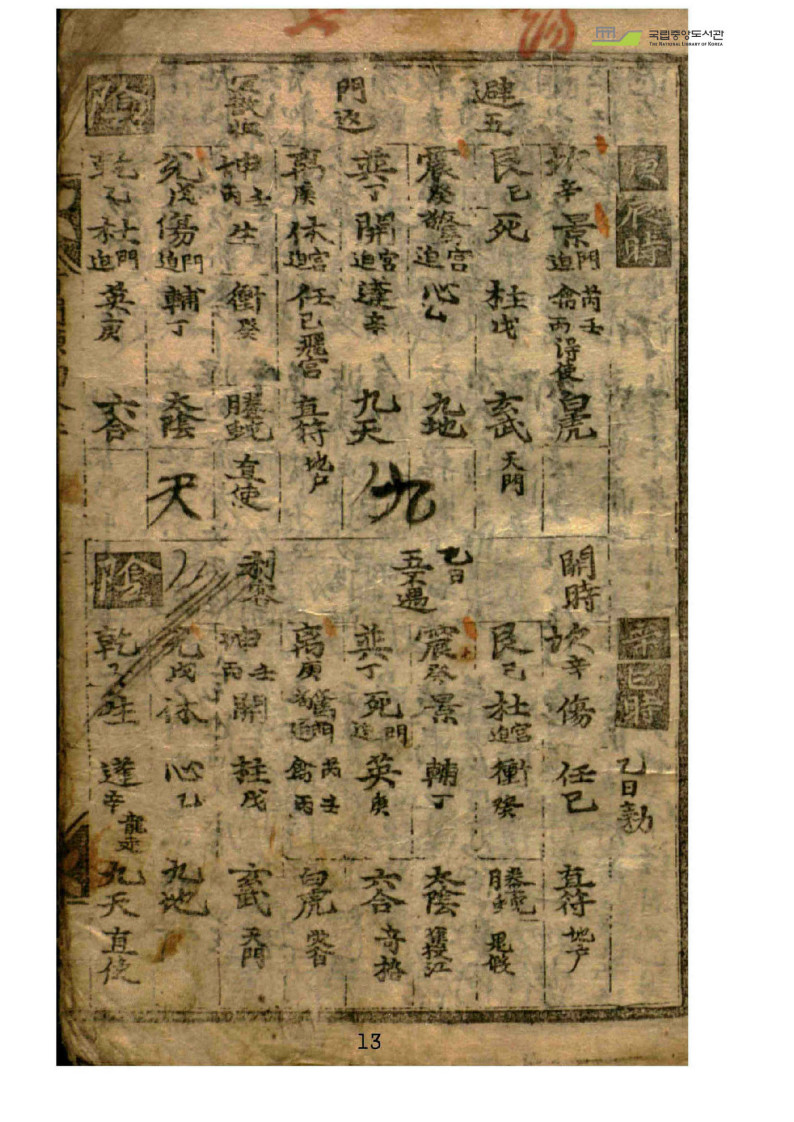 국립중앙도서관
THE NATIONAL LIBRARY OF KOREA
庚辰時
避五
門迫
陰
坎辛 景門迫 禽丙芮壬 得使 白虎
艮己 死 柱戊 玄武 天門
震癸 驚宮迫 心乙 九地
巽丁 開宮迫 蓬辛 九天
離庚 休宮迫 任己 飛宮 直符 地戶
坤丙壬 生 衝癸 騰蛇 直使
兌戊 傷門迫 輔丁 太陰
乾乙 杜門迫 英庚 六合
九
天
辛巳時
乙日
開時
乙日
五不遇
陰
坎辛 傷 任己 直符 地戶
艮己 杜宮迫 衝癸 騰蛇 鬼假
震癸 景 輔丁 太陰
巽丁 死門迫 英庚 六合 奇格
離庚 驚門迫 禽丙芮壬 白虎
坤丙壬 開 柱戊 玄武 天門
兌戊 休 心乙 九地
乾乙 生 蓬辛 龍走 九天 直使
13